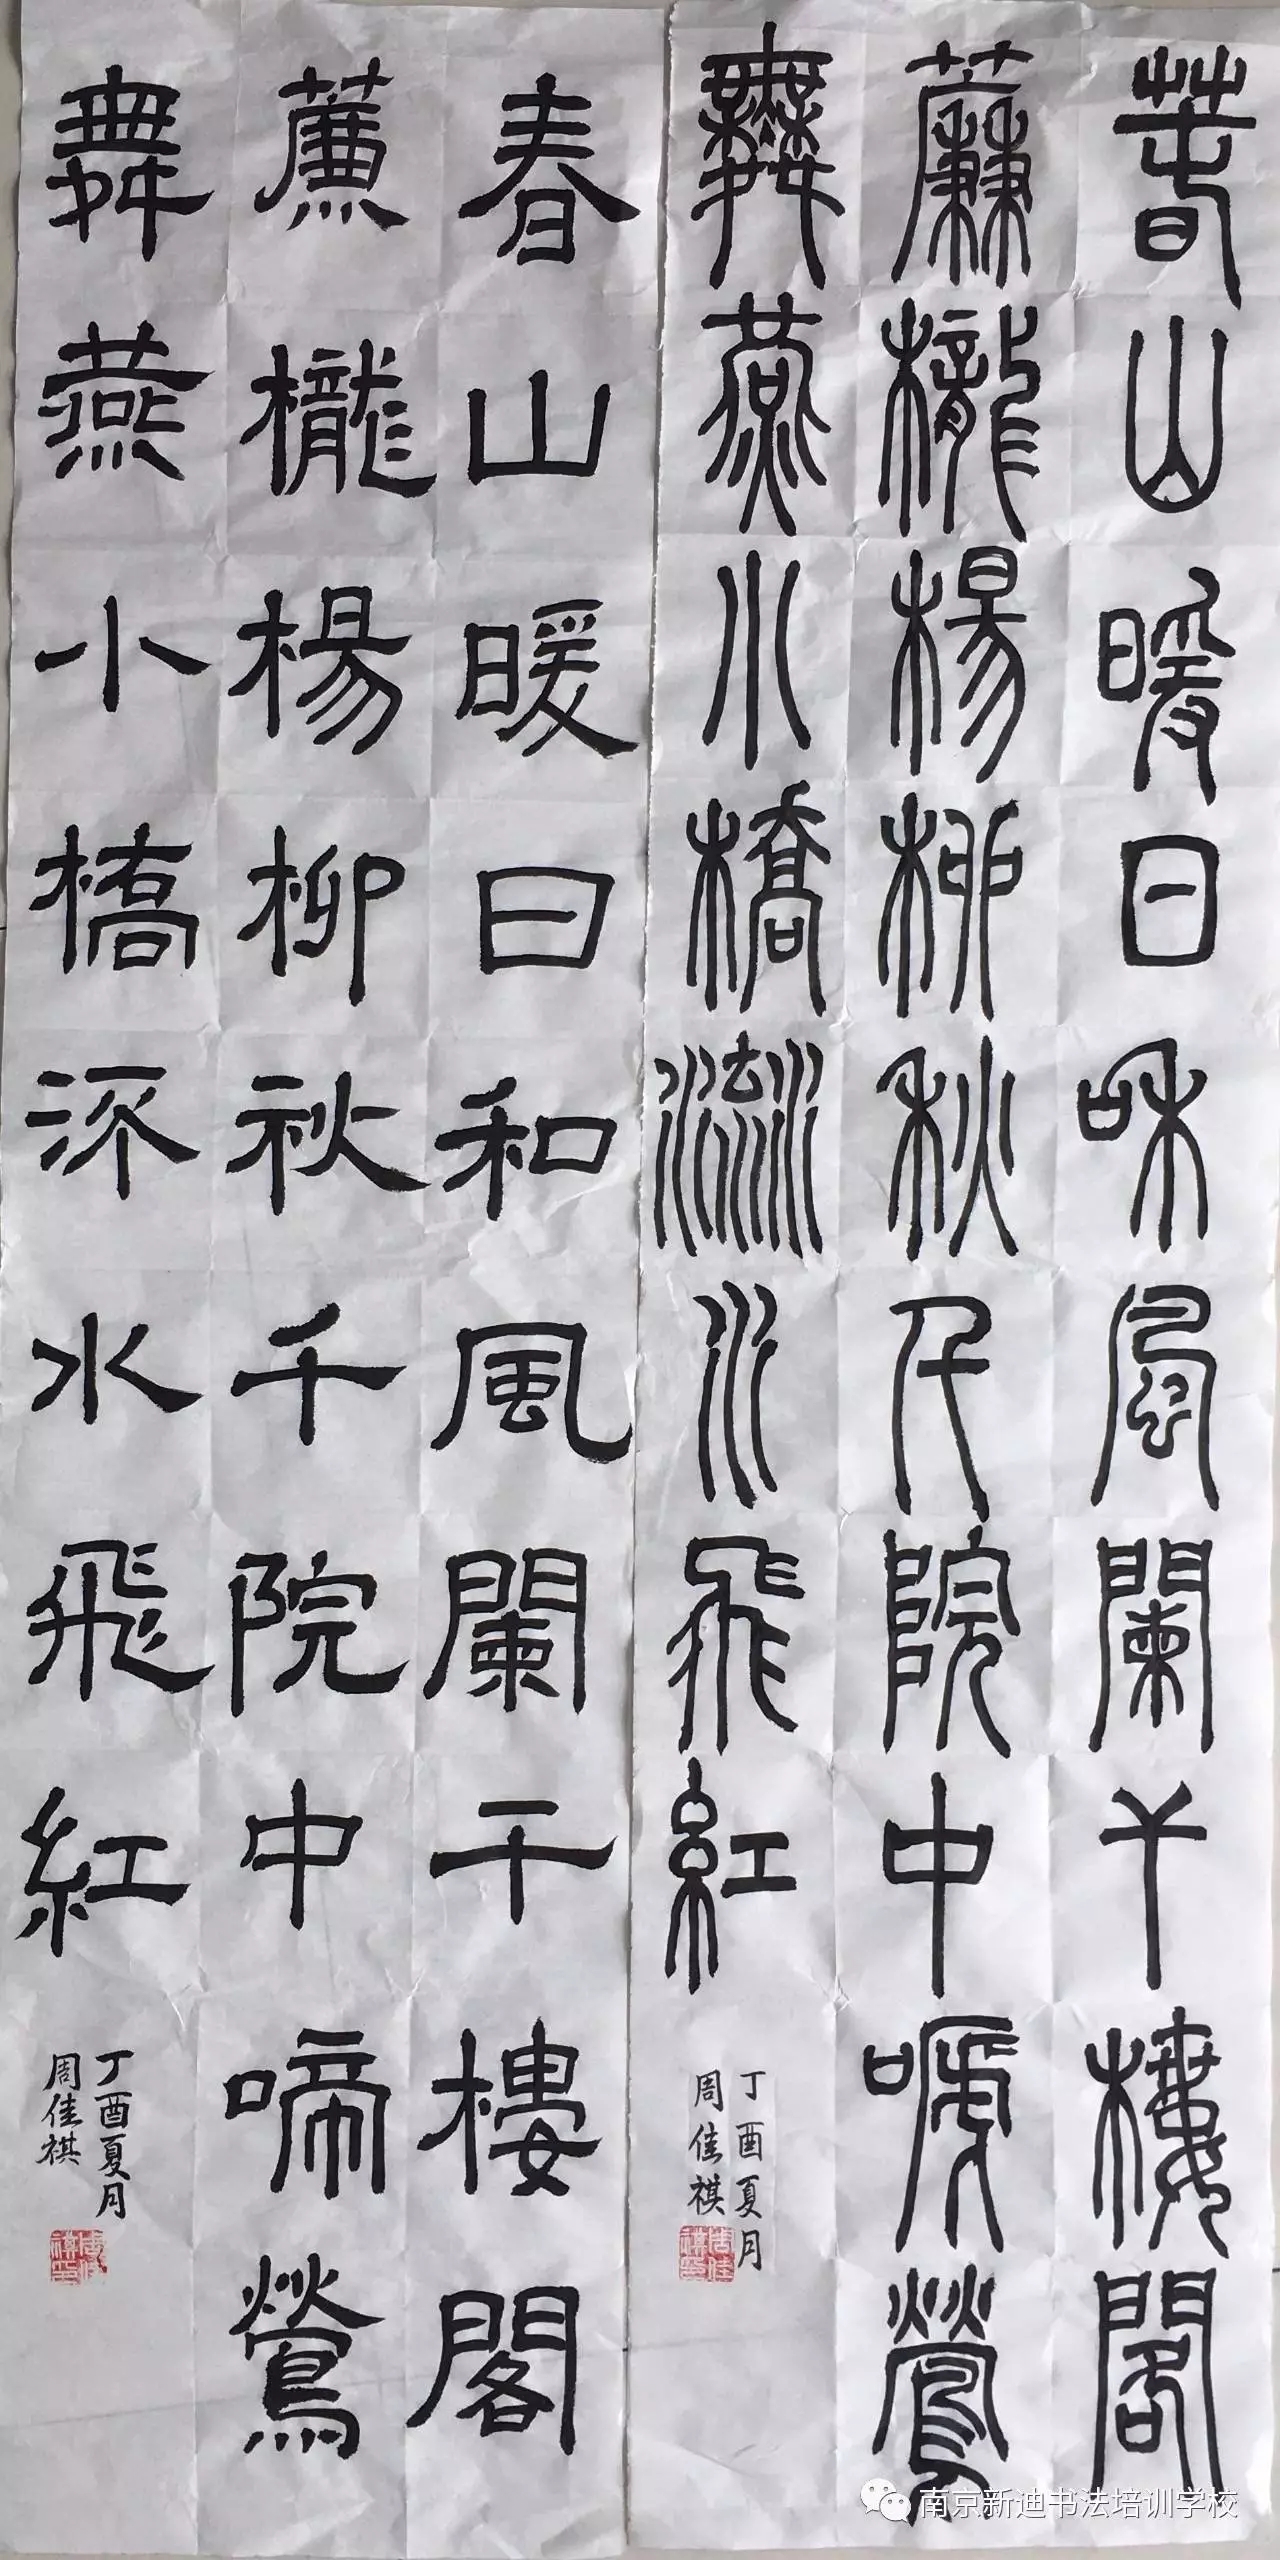 春山暖日和風闌干樓閣
簾櫳楊柳秋千院中啼鶯
舞燕小橋流水飛紅
丁酉夏月
周佳祺
春山暖日和風闌干樓閣
簾櫳楊柳秋千院中啼鶯
舞燕小橋流水飛紅
丁酉夏月
周佳祺
南京新迪书法培训学校